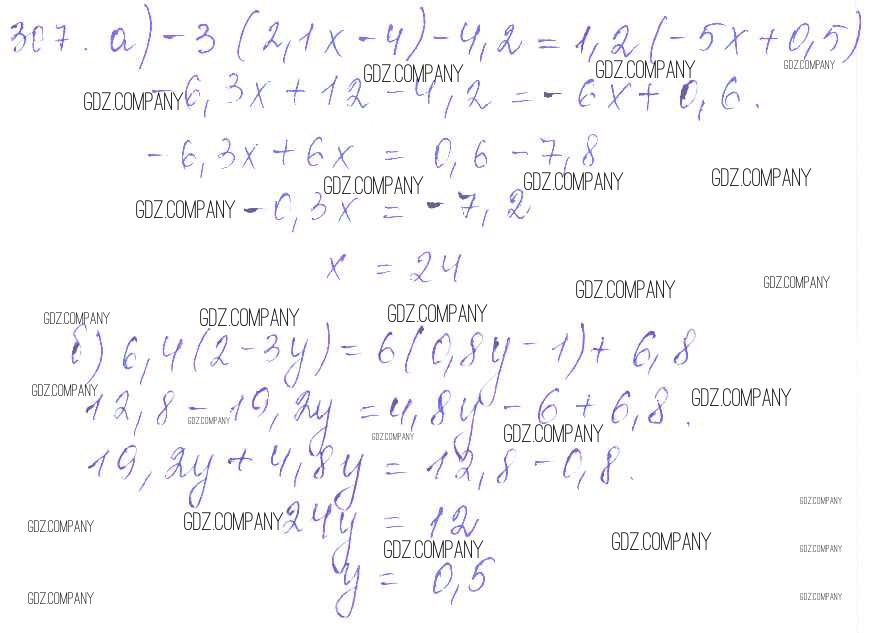 307. а) -3 (2,1x - 4) - 4,2 = 1,2 (-5x + 0,5)
GDZ.COMPANY GDZ.COMPANY GDZ.COMPANY
GDZ.COMPANY -6,3x + 12 - 4,2 = -6x + 0,6.
-6,3x + 6x = 0,6 - 7,8
GDZ.COMPANY GDZ.COMPANY GDZ.COMPANY
GDZ.COMPANY -0,3x = -7,2
x = 24
GDZ.COMPANY GDZ.COMPANY
GDZ.COMPANY GDZ.COMPANY GDZ.COMPANY
б) 6,4 (2 - 3y) = 6 (0,8y - 1) + 6,8
GDZ.COMPANY GDZ.COMPANY
12,8 - 19,2y = 4,8y - 6 + 6,8.
GDZ.COMPANY GDZ.COMPANY GDZ.COMPANY
19,2y + 4,8y = 12,8 - 0,8.
GDZ.COMPANY
GDZ.COMPANY GDZ.COMPANY 24y = 12
GDZ.COMPANY GDZ.COMPANY GDZ.COMPANY
y = 0,5
GDZ.COMPANY GDZ.COMPANY